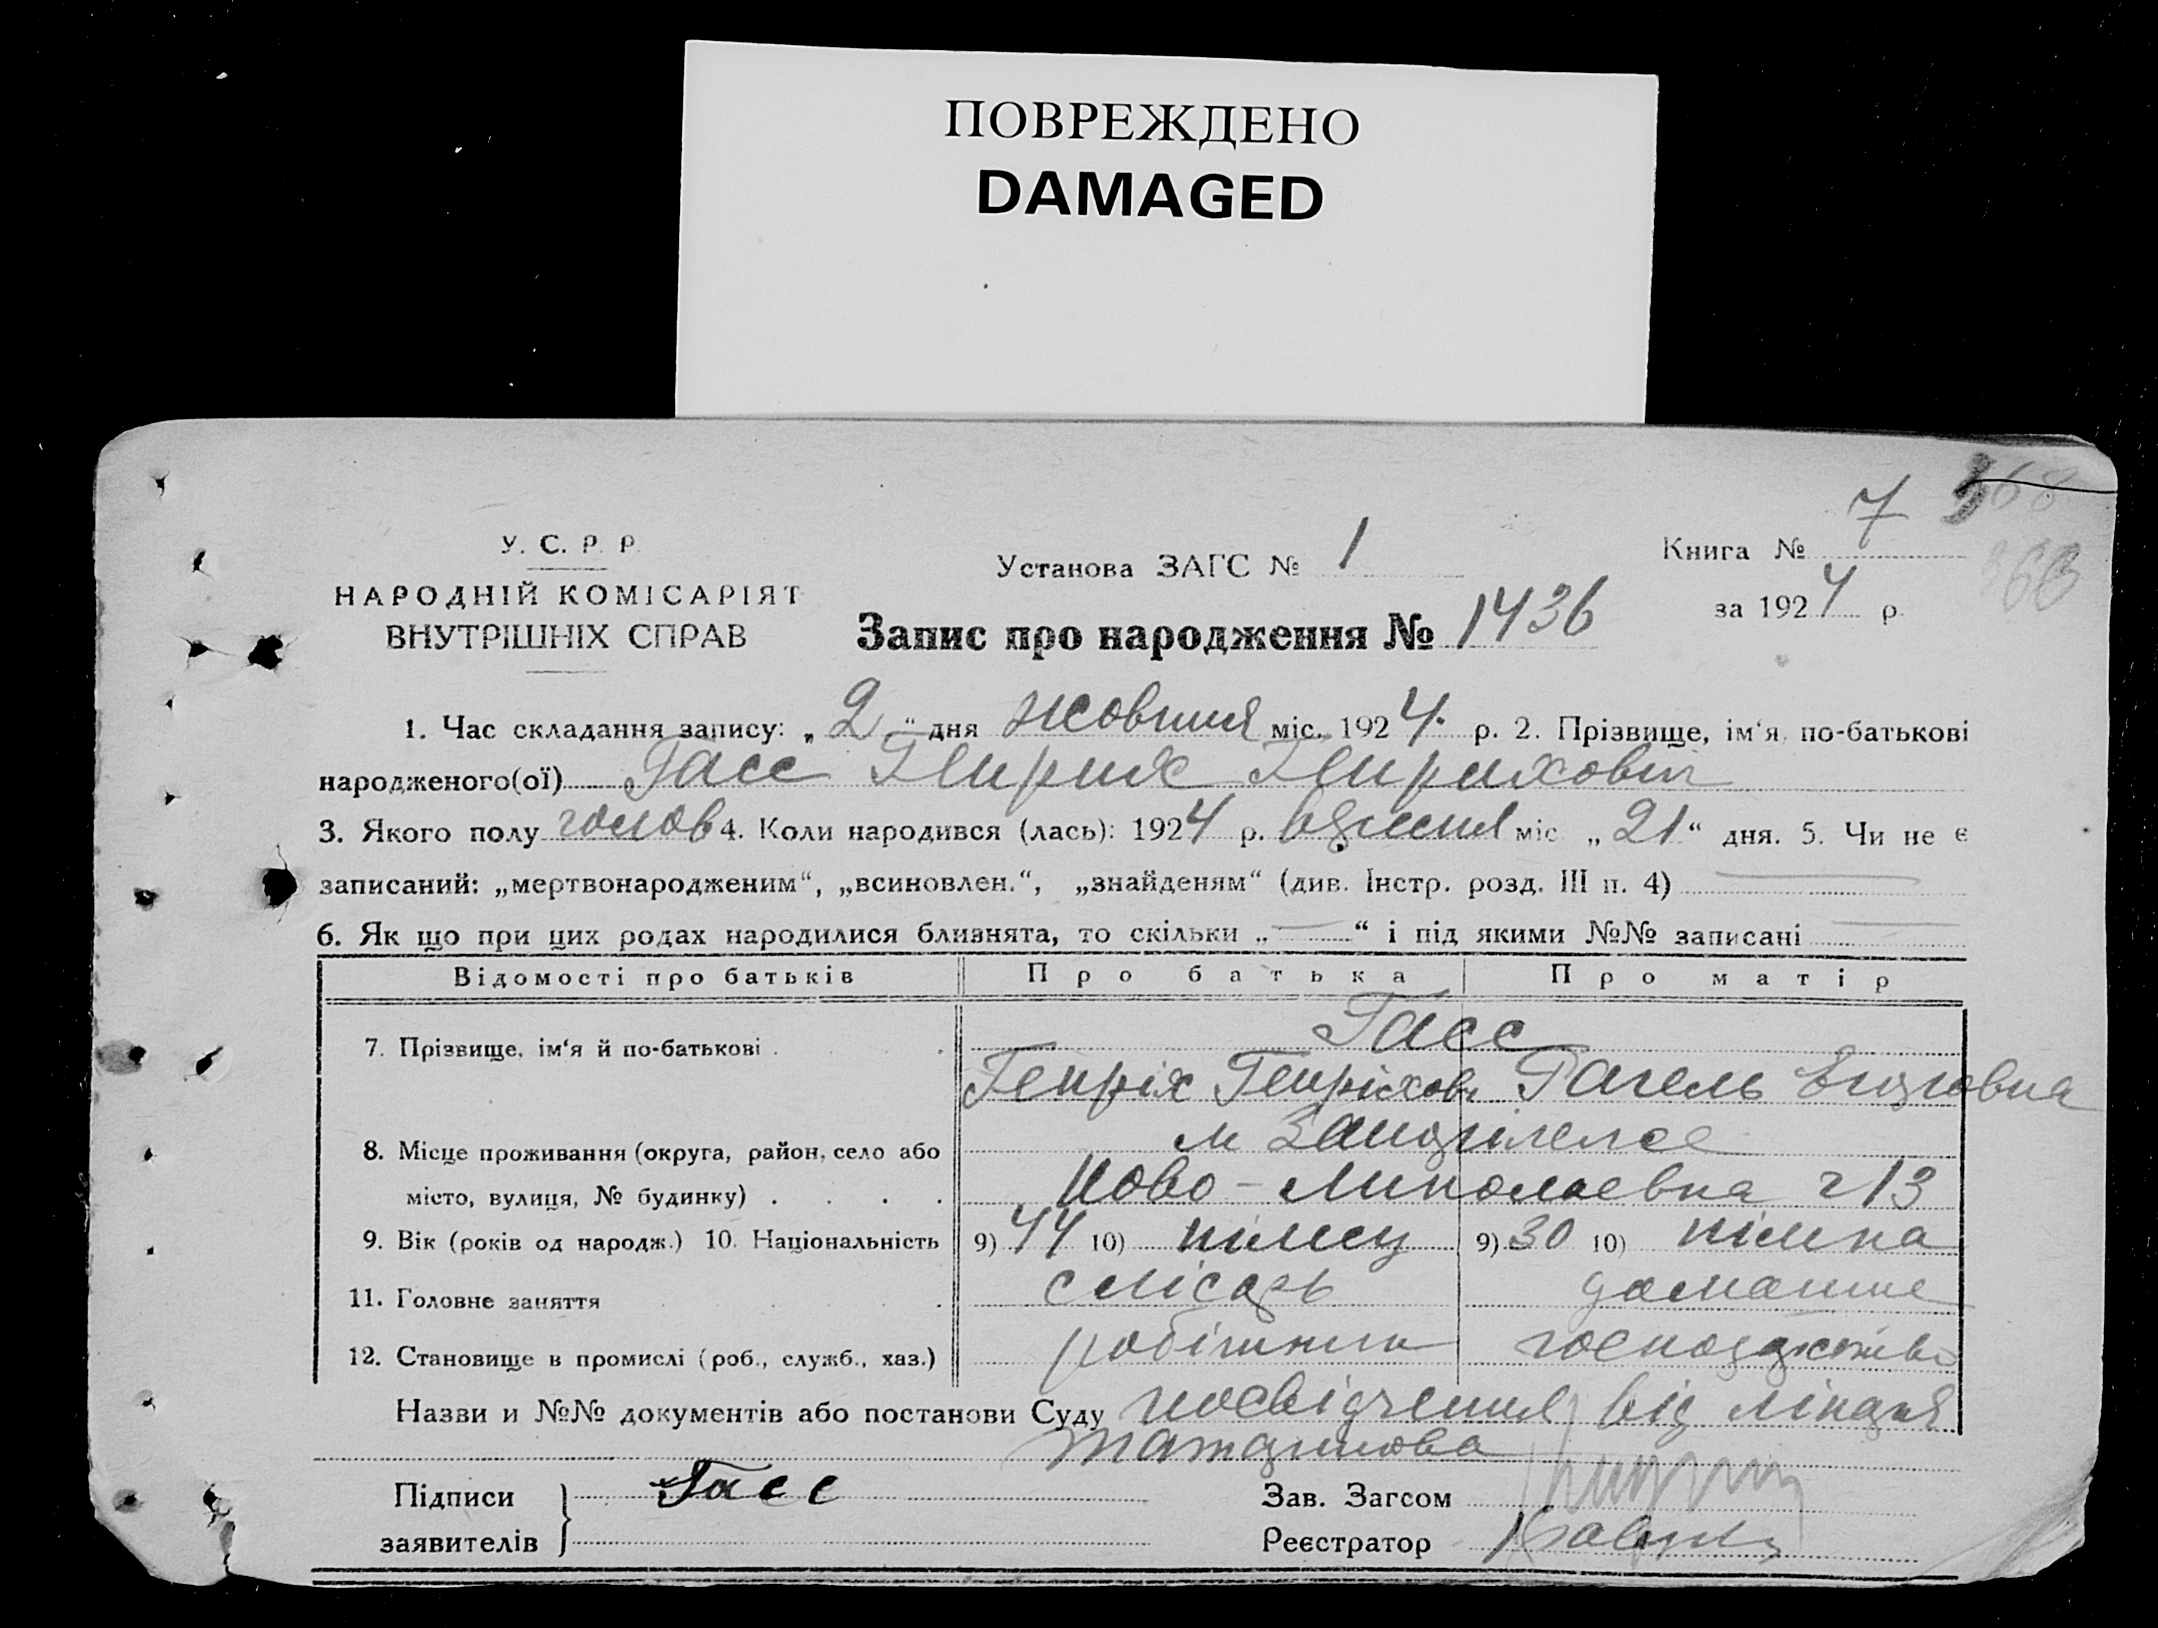 ПОВРЕЖДЕНО
DAMAGED
368
У. С. Р. Р.
Установа ЗАГС № 1
Книга № 7
НАРОДНІЙ КОМІСАРІЯТ
ВНУТРІШНІХ СПРАВ
Запис про народження № 1436
за 1924 р.
1. Час складання запису: „2“ дня жовтня міс. 1924. р. 2. Прізвище, ім‘я, по-батькові
народженого(ої) Гасс Генрих Генрихович
3. Якого полу чолов 4. Коли народився (лась): 1924 р. вересня міс „21“ дня. 5. Чи не є
записаний: „мертвонародженим“, „всиновлен.“, „знайденям“ (див. Інстр. розд. III п. 4)
6. Як що при цих родах народилися близнята, то скільки „—“ і під якими №№ записані
Відомості про батьків Про батька Про матір
7. Прізвище, ім‘я й по-батькові . Гасс
Генріх Генріхов
8. Місце проживання (округа, район, село або м Запоріжжє
місто, вулиця, № будинку) . . . . Ново-Миколаевка 13
9. Вік (років од народж.) 10. Національність 9) 44 10) німец 9) 30 10) німка
11. Головне заняття . слісарь домашне
12. Становище в промислі (роб., служб., хаз.) робітник господарство
Назви и №№ документів або постанови Суду посвідчення від лікаря
Підписи Гасс Зав. Загсом
заявителів Реєстратор